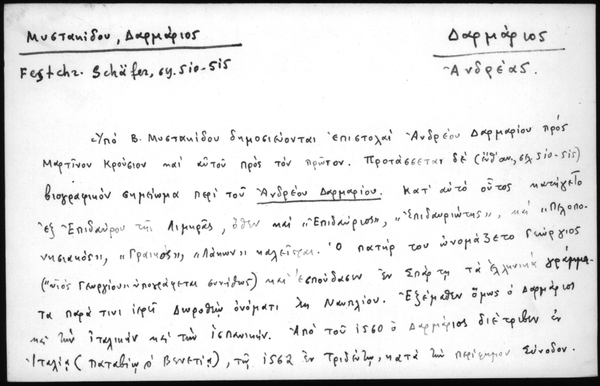 Μυστακίδου, Δαρμάριος
Δαρμάριος
Festchr. Schäfer, σγ. 510-515
Ἀνδρέας.
Ὑπὸ Β. Μυστακίδου δημοσιεύονται ἐπιστολαὶ Ἀνδρέου Δαρμαρίου πρὸς
Μαρτῖνον Κρούσιον καὶ αὐτοῦ πρὸς τὸν πρῶτον. Προτάσσεται δὲ (ἔνθ' ἀν, σελ. 510-515)
βιογραφικὸν σημείωμα περὶ τοῦ Ἀνδρέου Δαρμαρίου. Κατ' αὐτὸ οὗτος κατήγετο
ἐξ Ἐπιδαύρου τῆς Λιμηρᾶς, ὅθεν καὶ "Ἐπιδαύριος", "Ἐπιδαυριώτης", καὶ "Πελοπο-
νησιακός", "Γραικός", "Λάκων" καλεῖται. Ὁ πατήρ του ὠνομάζετο Γεώργιος
("υἱὸς Γεωργίου" ὑπογράφεται συνήθως) καὶ ἐσπούδασεν ἐν Σπάρτῃ τὰ ἑλληνικὰ γράμμα-
τα παρά τινι ἱερεῖ Δωροθέῳ ὀνόματι ἐκ Ναυπλίου. Ἐξέμαθεν ὅμως ὁ Δαρμάριος
καὶ τὴν ἰταλικὴν καὶ τὴν ἱσπανικήν. Ἀπὸ τοῦ 1560 ὁ Δαρμάριος διέτριβεν ἐν
Ἰταλίᾳ (Παταβίῳ, Βενετίᾳ), τῷ 1562 ἐν Τριδέντῳ, κατὰ τὴν περίφημον Σύνοδον.